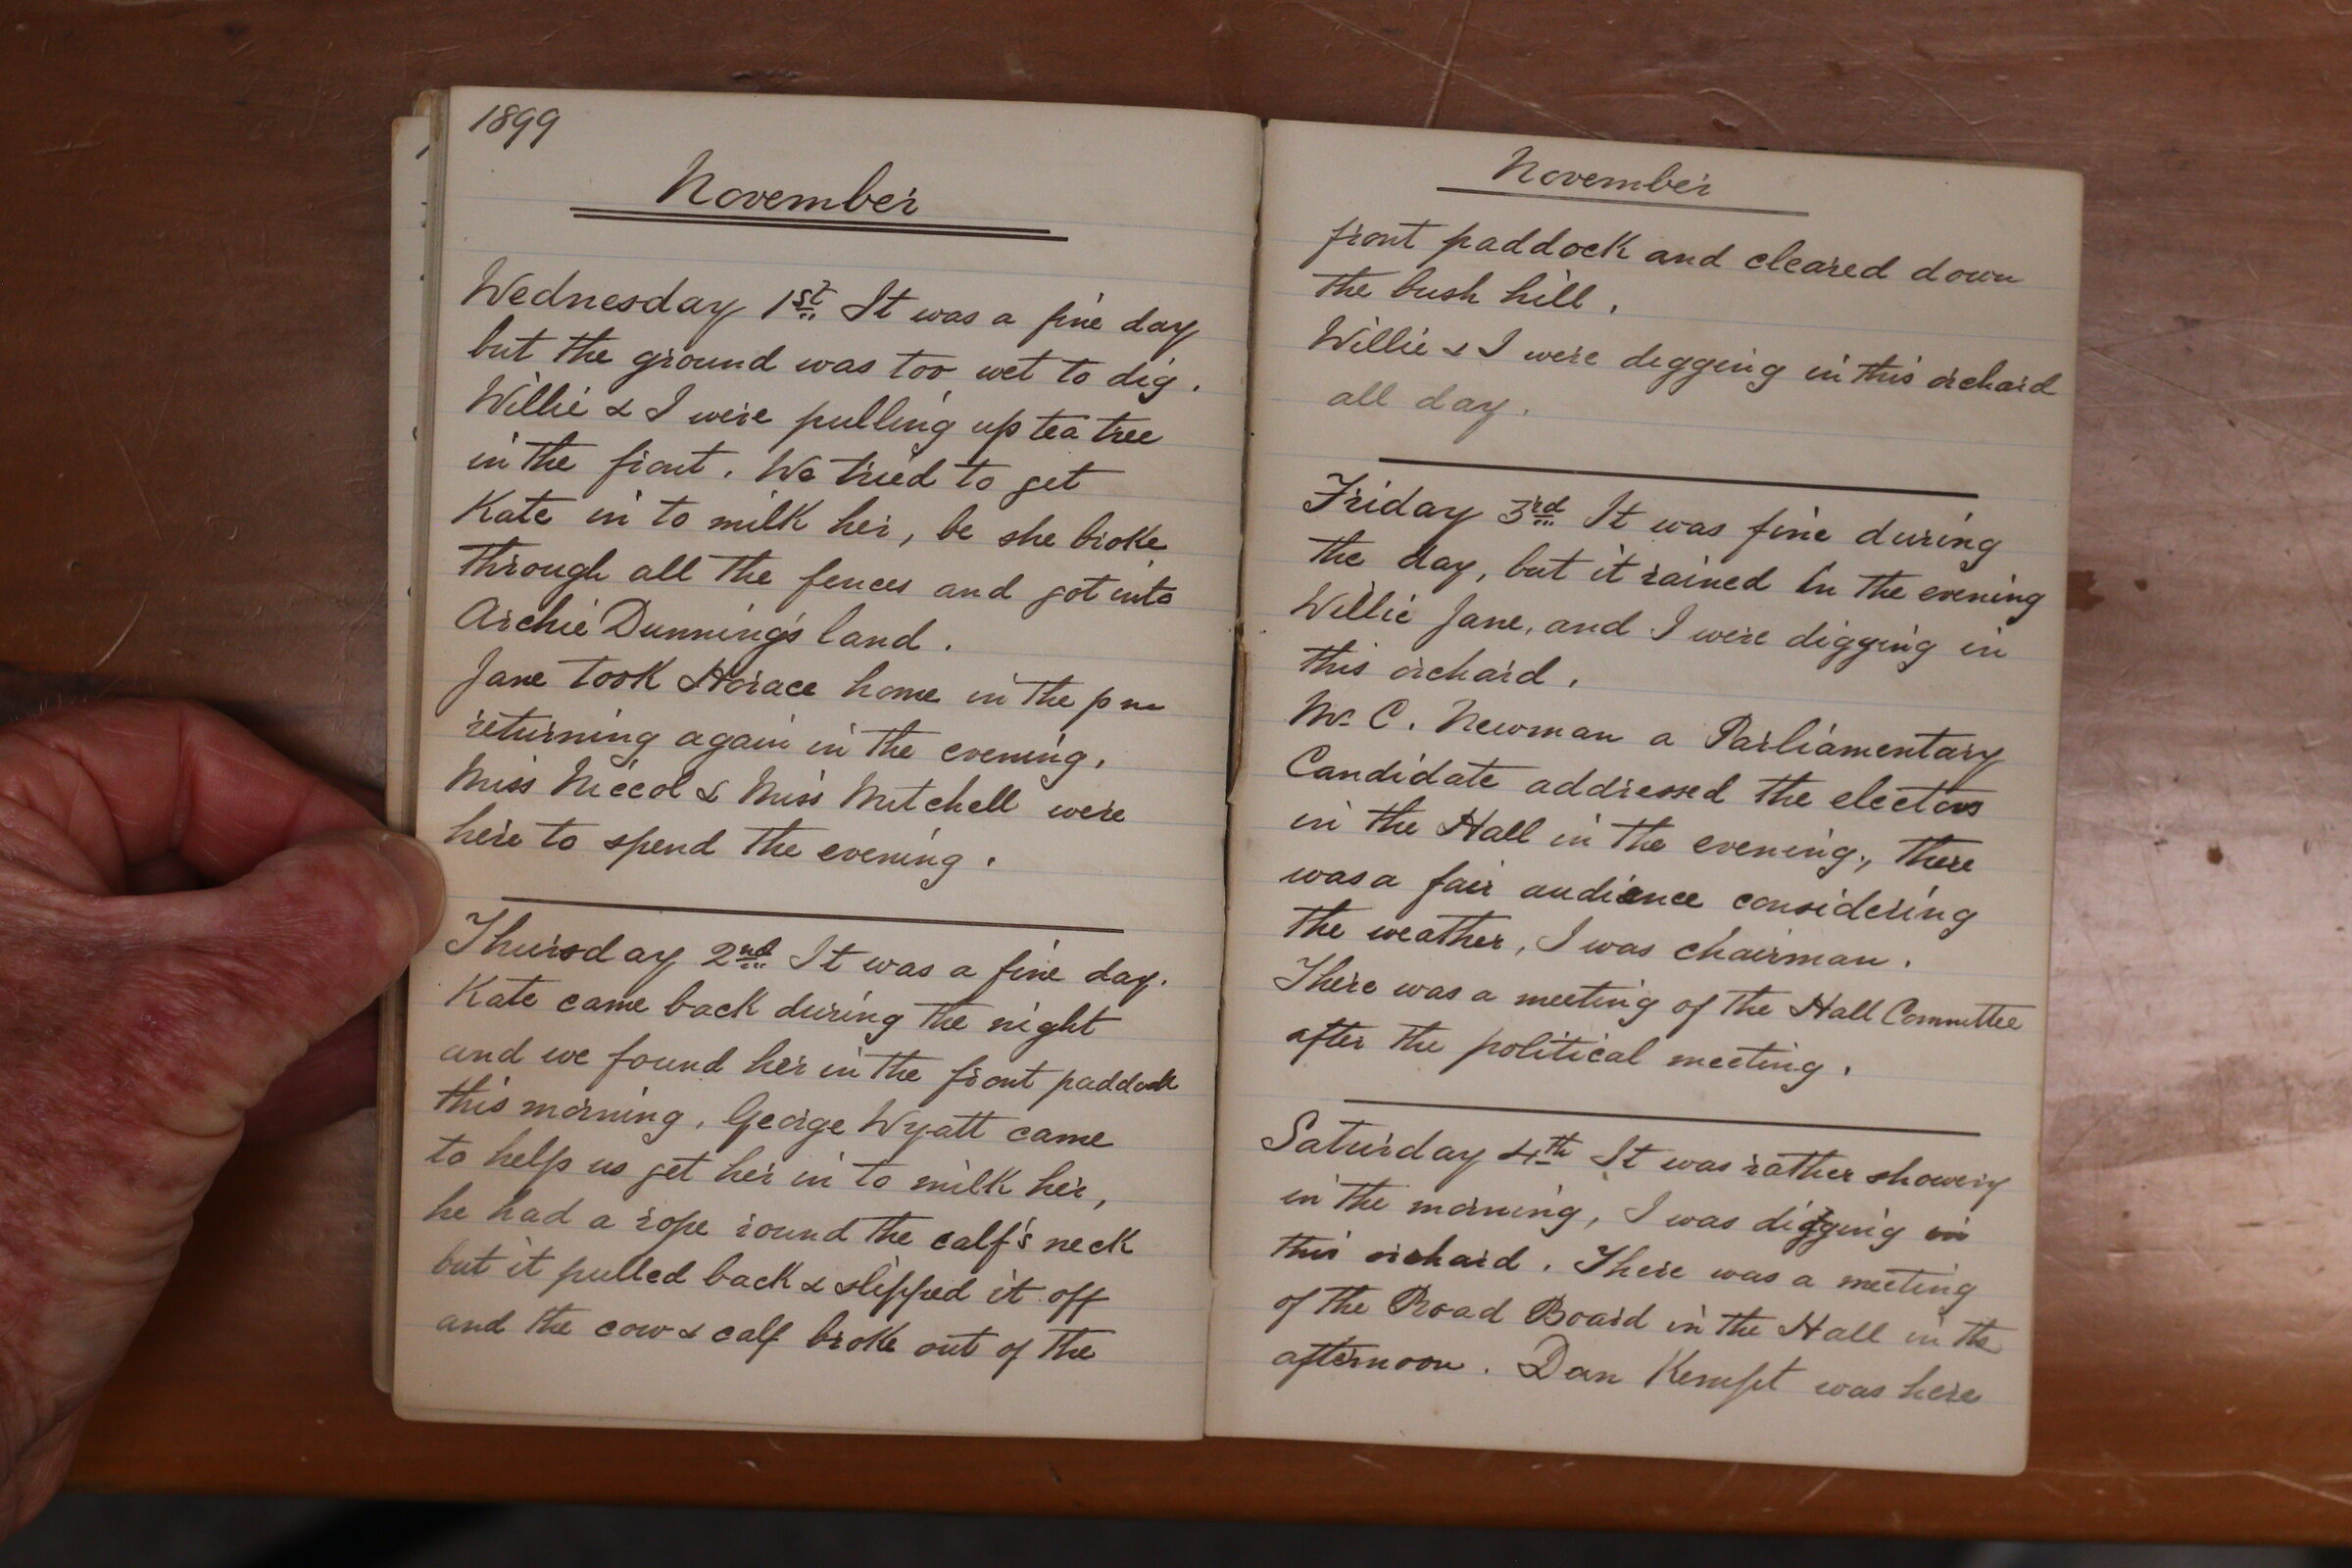 1899
November
Wednesday 1st It was a fine day
but the ground was too wet to dig.
Willie & I were pulling up tea tree
in the front. We tried to get
Kate in to milk her, be she broke
through all the fences and got into
Archie Dunning's land.
Jane took Horace home in the pm
returning again in the evening.
Miss Niccol & Miss Mitchell were
here to spend the evening.
Thursday 2nd It was a fine day.
Kate came back during the night
and we found her in the front paddock
this morning. George Wyatt came
to help us get her in to milk her,
he had a rope round the calf's neck
but it pulled back & slipped it off
and the cow & calf broke out of the
November
front paddock and cleared down
the bush hill.
Willie & I were digging in this orchard
all day.
Friday 3rd It was fine during
the day, but it rained in the evening
Willie Jane, and I were digging in
this orchard.
Mr C. Newman a Parliamentary
Candidate addressed the electors
in the Hall in the evening, there
was a fair audience considering
the weather, I was chairman.
There was a meeting of the Hall Committee
after the political meeting.
Saturday 4th It was rather showery
in the morning, I was digging in
this orchard. There was a meeting
of the Road Board in the Hall in the
afternoon. Dan Kempt was here